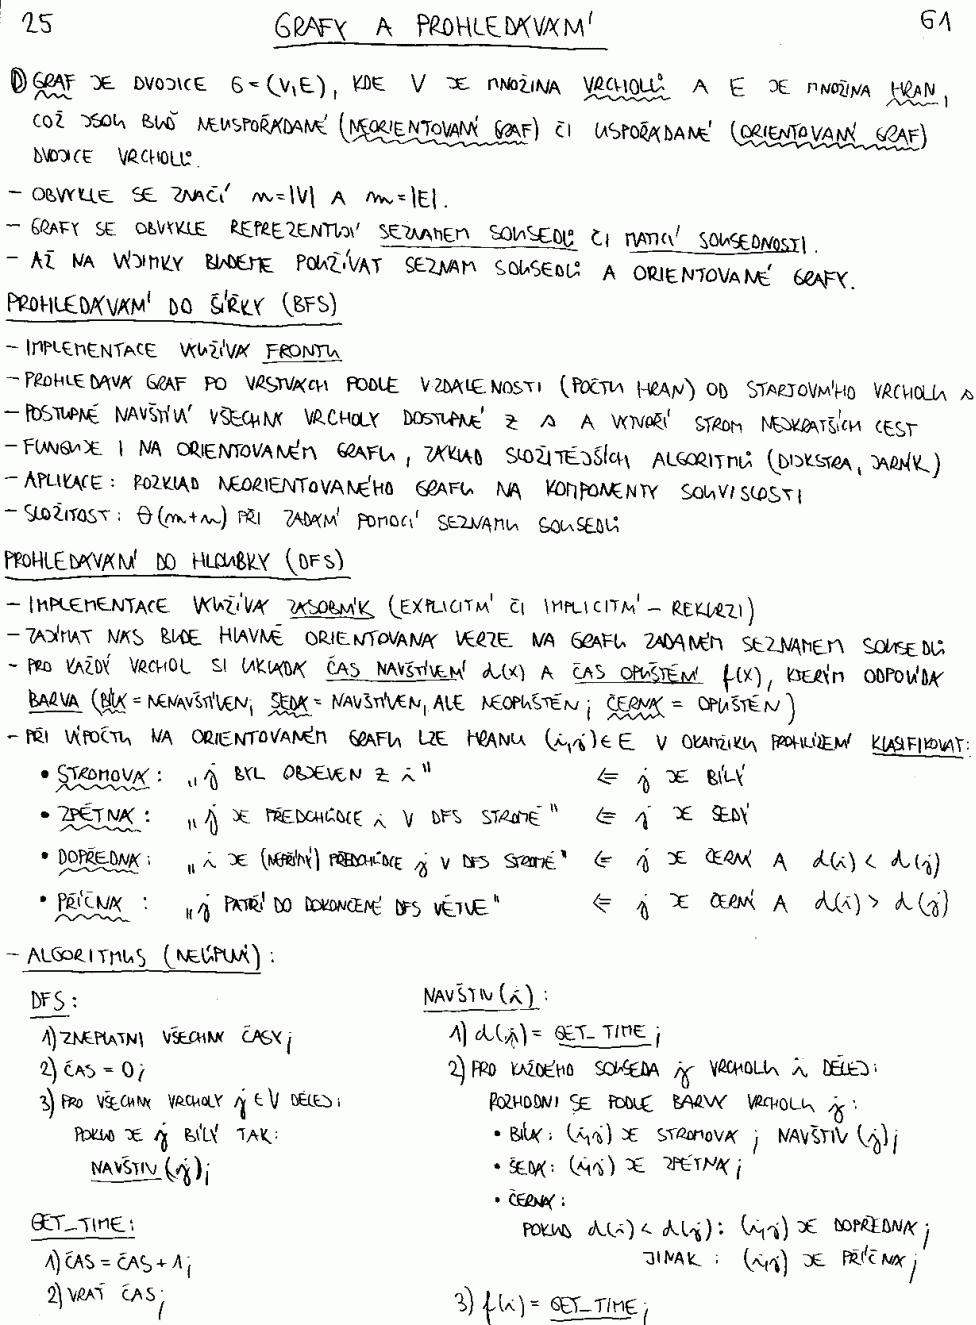 25 GRAFY A PROHLEDÁVÁNÍ G1
Ⓓ GRAF JE DVOJICE G=(V,E), KDE V JE MNOŽINA VRCHOLŮ A E JE MNOŽINA HRAN,
COŽ JSOU BUĎ NEUSPOŘÁDANÉ (NEORIENTOVANÝ GRAF) ČI USPOŘÁDANÉ (ORIENTOVANÝ GRAF)
DVOJICE VRCHOLŮ.
- OBVYKLE SE ZNAČÍ n=|V| A m=|E|.
- GRAFY SE OBVYKLE REPREZENTUJÍ SEZNAMEM SOUSEDŮ ČI MATICÍ SOUSEDNOSTI.
- AŽ NA VÝJIMKY BUDEME POUŽÍVAT SEZNAM SOUSEDŮ A ORIENTOVANÉ GRAFY.
PROHLEDÁVÁNÍ DO ŠÍŘKY (BFS)
- IMPLEMENTACE VYUŽÍVÁ FRONTU
- PROHLEDÁVÁ GRAF PO VRSTVÁCH PODLE VZDÁLENOSTI (POČTU HRAN) OD STARTOVNÍHO VRCHOLU s
- POSTUPNĚ NAVŠTÍVÍ VŠECHNY VRCHOLY DOSTUPNÉ Z s A VYTVOŘÍ STROM NEJKRATŠÍCH CEST
- FUNGUJE I NA ORIENTOVANÉM GRAFU, ZÁKLAD SLOŽITĚJŠÍCH ALGORITMŮ (DIJKSTRA, JARNÍK)
- APLIKACE: ROZKLAD NEORIENTOVANÉHO GRAFU NA KOMPONENTY SOUVISLOSTI
- SLOŽITOST: Θ(m+n) PŘI ZADÁNÍ POMOCÍ SEZNAMU SOUSEDŮ
PROHLEDÁVÁNÍ DO HLOUBKY (DFS)
- IMPLEMENTACE VYUŽÍVÁ ZÁSOBNÍK (EXPLICITNÍ ČI IMPLICITNÍ - REKURZI)
- ZAJÍMAT NÁS BUDE HLAVNĚ ORIENTOVANÁ VERZE NA GRAFU ZADANÉM SEZNAMEM SOUSEDŮ
- PRO KAŽDÝ VRCHOL SI UKLÁDÁ ČAS NAVŠTÍVENÍ d(x) A ČAS OPUŠTĚNÍ f(x), KTERÝM ODPOVÍDÁ
BARVA (BÍLÁ = NENAVŠTÍVEN; ŠEDÁ = NAVŠTÍVEN, ALE NEOPUŠTĚN; ČERNÁ = OPUŠTĚN)
- PŘI VÝPOČTU NA ORIENTOVANÉM GRAFU LZE HRANU (i,j)∈E V OKAMŽIKU PROHLÍŽENÍ KLASIFIKOVAT:
• STROMOVÁ: „j BYL OBJEVEN Z i" ⇐ j JE BÍLÝ
• ZPĚTNÁ: „j JE PŘEDCHŮDCE i V DFS STROMĚ" ⇐ j JE ŠEDÝ
• DOPŘEDNÁ: „i JE (NEPŘÍMÝ) PŘEDCHŮDCE j V DFS STROMĚ" ⇐ j JE ČERNÝ A d(i) < d(j)
• PŘÍČNÁ: „j PATŘÍ DO DOKONČENÉ DFS VĚTVE" ⇐ j JE ČERNÝ A d(i) > d(j)
- ALGORITMUS (NEÚPLNÝ):
DFS:
1) ZNEPLATNI VŠECHNY ČASY;
2) ČAS = 0;
3) PRO VŠECHNY VRCHOLY j∈V DĚLEJ:
POKUD JE j BÍLÝ TAK:
NAVŠTIV(j);
GET_TIME:
1) ČAS = ČAS + 1;
2) VRAŤ ČAS;
NAVŠTIV(i):
1) d(i) = GET_TIME;
2) PRO KAŽDÉHO SOUSEDA j VRCHOLU i DĚLEJ:
ROZHODNI SE PODLE BARVY VRCHOLU j:
• BÍLÁ: (i,j) JE STROMOVÁ; NAVŠTIV(j);
• ŠEDÁ: (i,j) JE ZPĚTNÁ;
• ČERNÁ:
POKUD d(i) < d(j): (i,j) JE DOPŘEDNÁ;
JINAK: (i,j) JE PŘÍČNÁ;
3) f(i) = GET_TIME;